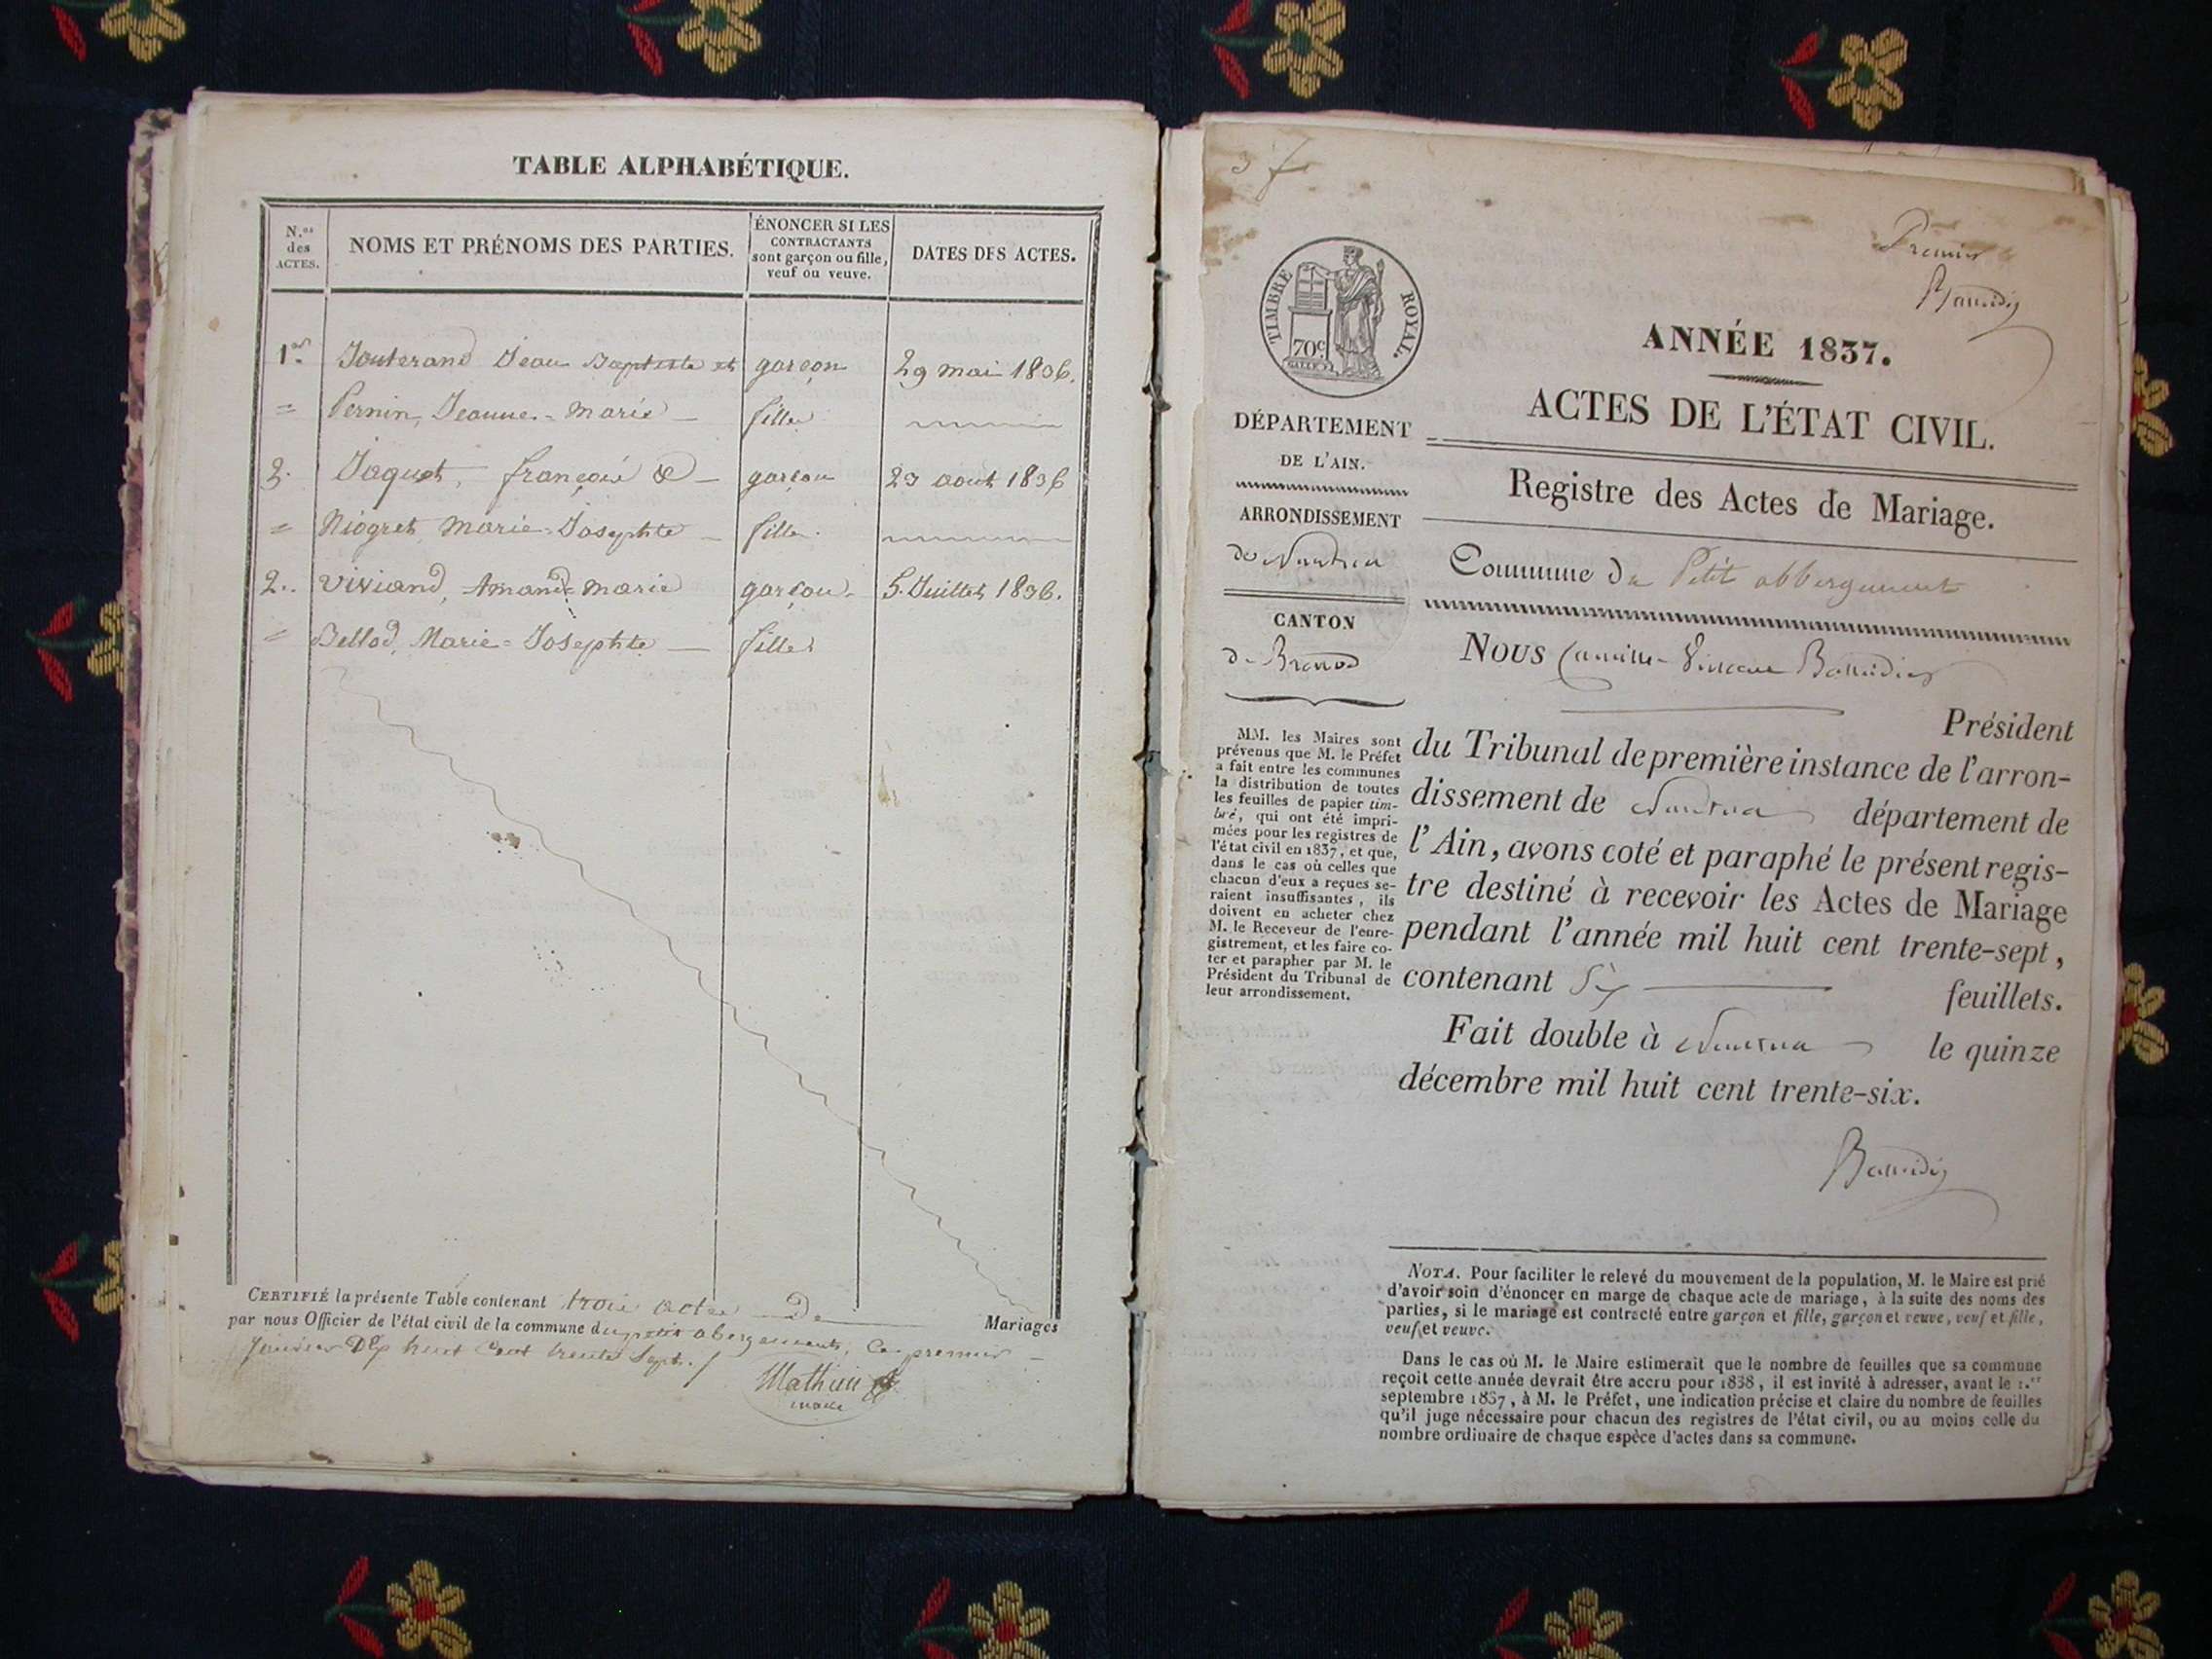 TABLE ALPHABÉTIQUE.
N.os des ACTES.
NOMS ET PRÉNOMS DES PARTIES.
ÉNONCER SI LES CONTRACTANTS sont garçon ou fille, veuf ou veuve.
DATES DES ACTES.
1er Jouterand Jean Baptiste et garçon 29 mai 1836.
= Pernin, Jeanne-Marie fille
3. Jaquet, françois & garçon 23 aout 1836
= Niogret Marie-Josephte fille.
2. Viviand, Amand-Marie garçon 5 Juillet 1836.
= Bellod, Marie-Josephte fille
CERTIFIÉ la présente Table contenant trois actes De Mariages
par nous Officier de l'état civil de la commune du petit abergement, Ce premier
Janvier Mil huit Cent trente Sept.
Mathieu
maire
37
Premier
TIMBRE ROYAL.
70c
ANNÉE 1837.
ACTES DE L'ÉTAT CIVIL.
Registre des Actes de Mariage.
DÉPARTEMENT
DE L'AIN.
ARRONDISSEMENT
de Nantua
CANTON
de Brenod
Commune du Petit abbergement
NOUS Camille
Président
du Tribunal de première instance de l'arron-
dissement de Nantua département de
l'Ain, avons coté et paraphé le présent regis-
tre destiné à recevoir les Actes de Mariage
pendant l'année mil huit cent trente-sept,
contenant Six feuillets.
Fait double à Nantua le quinze
décembre mil huit cent trente-six.
MM. les Maires sont
prévenus que M. le Préfet
a fait entre les communes
la distribution de toutes
les feuilles de papier tim-
bré, qui ont été impri-
mées pour les registres de
l'état civil en 1837, et que,
dans le cas où celles que
chacun d'eux a reçues se-
raient insuffisantes, ils
doivent en acheter chez
M. le Receveur de l'enre-
gistrement, et les faire co-
ter et parapher par M. le
Président du Tribunal de
leur arrondissement.
NOTA. Pour faciliter le relevé du mouvement de la population, M. le Maire est prié
d'avoir soin d'énoncer en marge de chaque acte de mariage, à la suite des noms des
parties, si le mariage est contracté entre garçon et fille, garçon et veuve, veuf et fille,
veuf et veuve.
Dans le cas où M. le Maire estimerait que le nombre de feuilles que sa commune
reçoit cette année devrait être accru pour 1838, il est invité à adresser, avant le 1.er
septembre 1837, à M. le Préfet, une indication précise et claire du nombre de feuilles
qu'il juge nécessaire pour chacun des registres de l'état civil, ou au moins celle du
nombre ordinaire de chaque espèce d'actes dans sa commune.